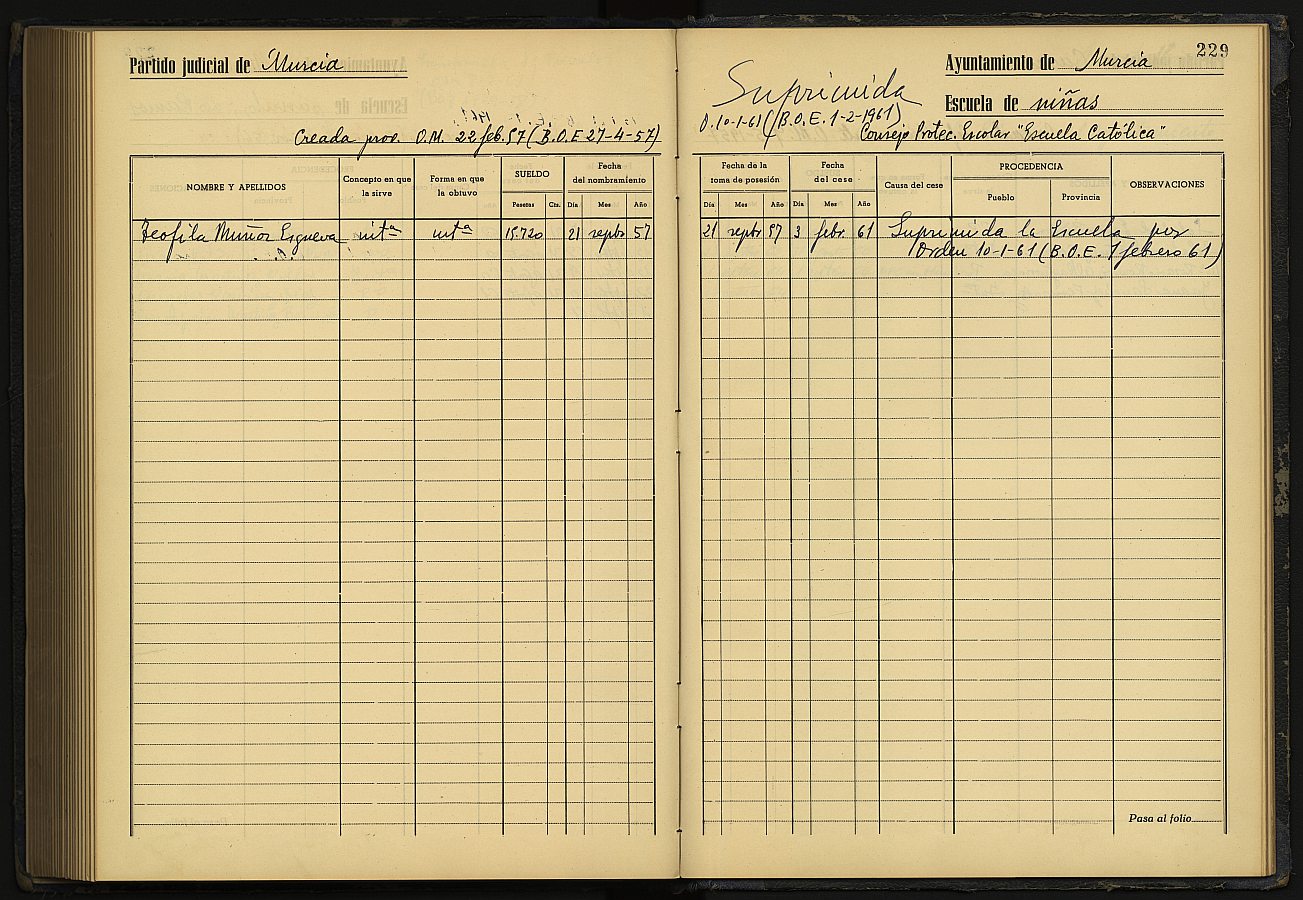 229
Partido judicial de Murcia
Creada prov. O.M. 22 feb. 57 (B.O.E 27-4-57)
NOMBRE Y APELLIDOS
Concepto en que la sirve
Forma en que la obtuvo
SUELDO
Pesetas Cts.
Fecha del nombramiento
Día Mes Año
Teofila Muñoz Esgueva mta mta 15.720 21 sepbr 57
Ayuntamiento de Murcia
Suprimida
Escuela de niñas
O. 10-1-61 (B.O.E. 1-2-1961)
Consejo Protec. Escolar "Escuela Católica"
Fecha de la toma de posesión
Día Mes Año
Fecha del cese
Día Mes Año
Causa del cese
PROCEDENCIA
Pueblo Provincia
OBSERVACIONES
21 sepbr 57 3 febr. 61 Suprimida la Escuela por
Orden 10-1-61 (B.O.E. 1 febrero 61)
Pasa al folio